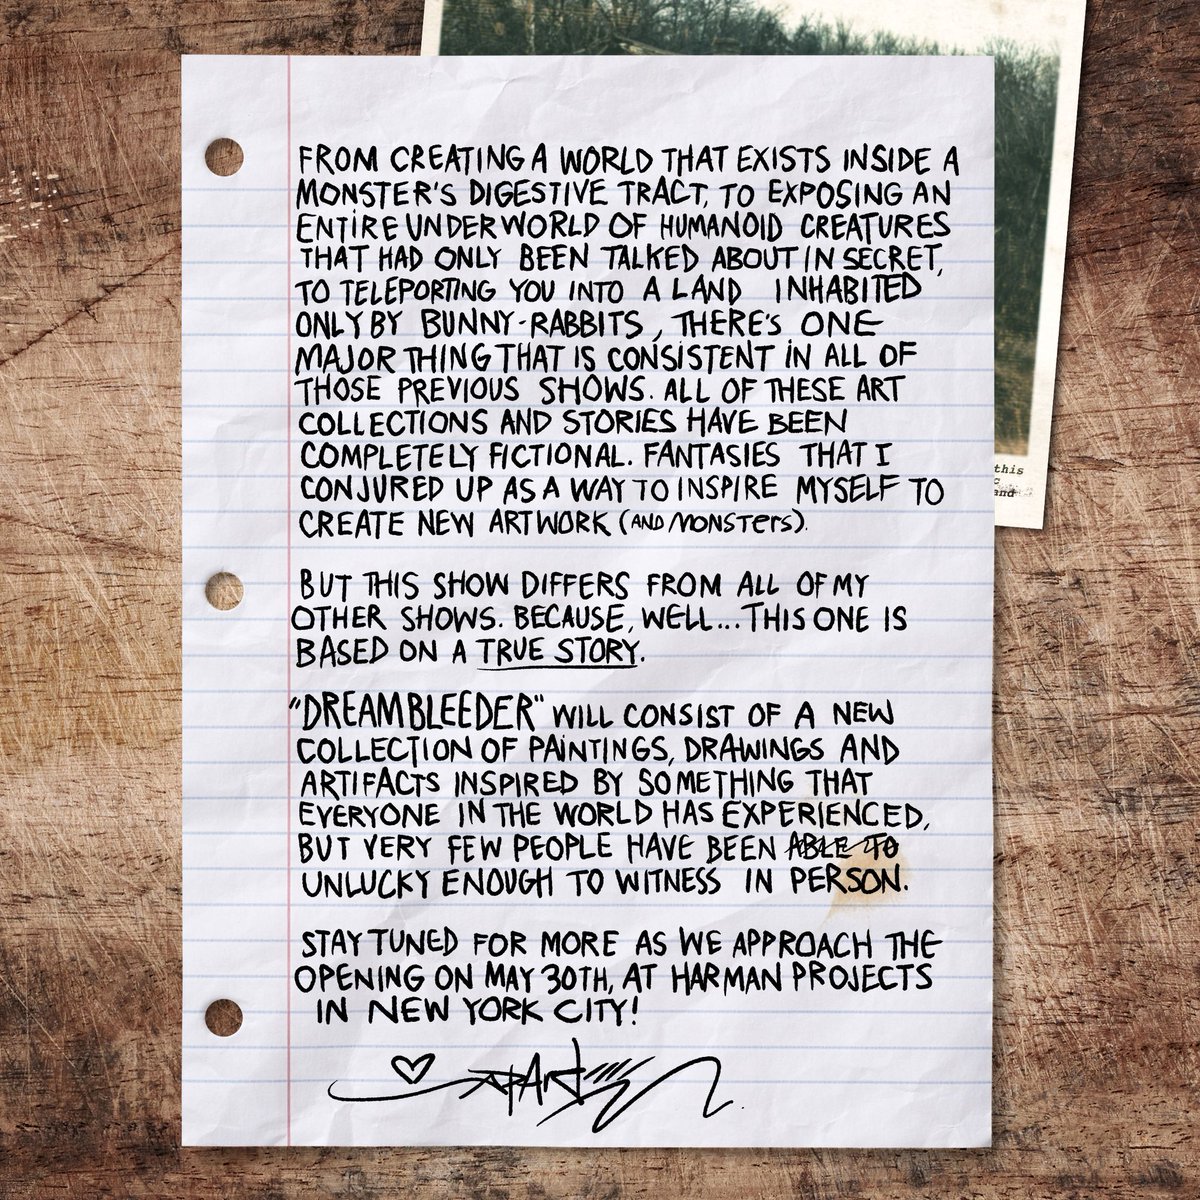 FROM CREATING A WORLD THAT EXISTS INSIDE A
MONSTER'S DIGESTIVE TRACT, TO EXPOSING AN
ENTIRE UNDERWORLD OF HUMANOID CREATURES
THAT HAD ONLY BEEN TALKED ABOUT IN SECRET,
TO TELEPORTING YOU INTO A LAND INHABITED
ONLY BY BUNNY-RABBITS, THERE'S ONE
MAJOR THING THAT IS CONSISTENT IN ALL OF
THOSE PREVIOUS SHOWS. ALL OF THESE ART
COLLECTIONS AND STORIES HAVE BEEN
COMPLETELY FICTIONAL. FANTASIES THAT I
CONJURED UP AS A WAY TO INSPIRE MYSELF TO
CREATE NEW ARTWORK (AND MONSTERS).
BUT THIS SHOW DIFFERS FROM ALL OF MY
OTHER SHOWS. BECAUSE, WELL... THIS ONE IS
BASED ON A TRUE STORY.
"DREAMBLEEDER" WILL CONSIST OF A NEW
COLLECTION OF PAINTINGS, DRAWINGS AND
ARTIFACTS INSPIRED BY SOMETHING THAT
EVERYONE IN THE WORLD HAS EXPERIENCED,
BUT VERY FEW PEOPLE HAVE BEEN ABLE TO
UNLUCKY ENOUGH TO WITNESS IN PERSON.
STAY TUNED FOR MORE AS WE APPROACH THE
OPENING ON MAY 30TH, AT HARMAN PROJECTS
IN NEW YORK CITY!
this
and